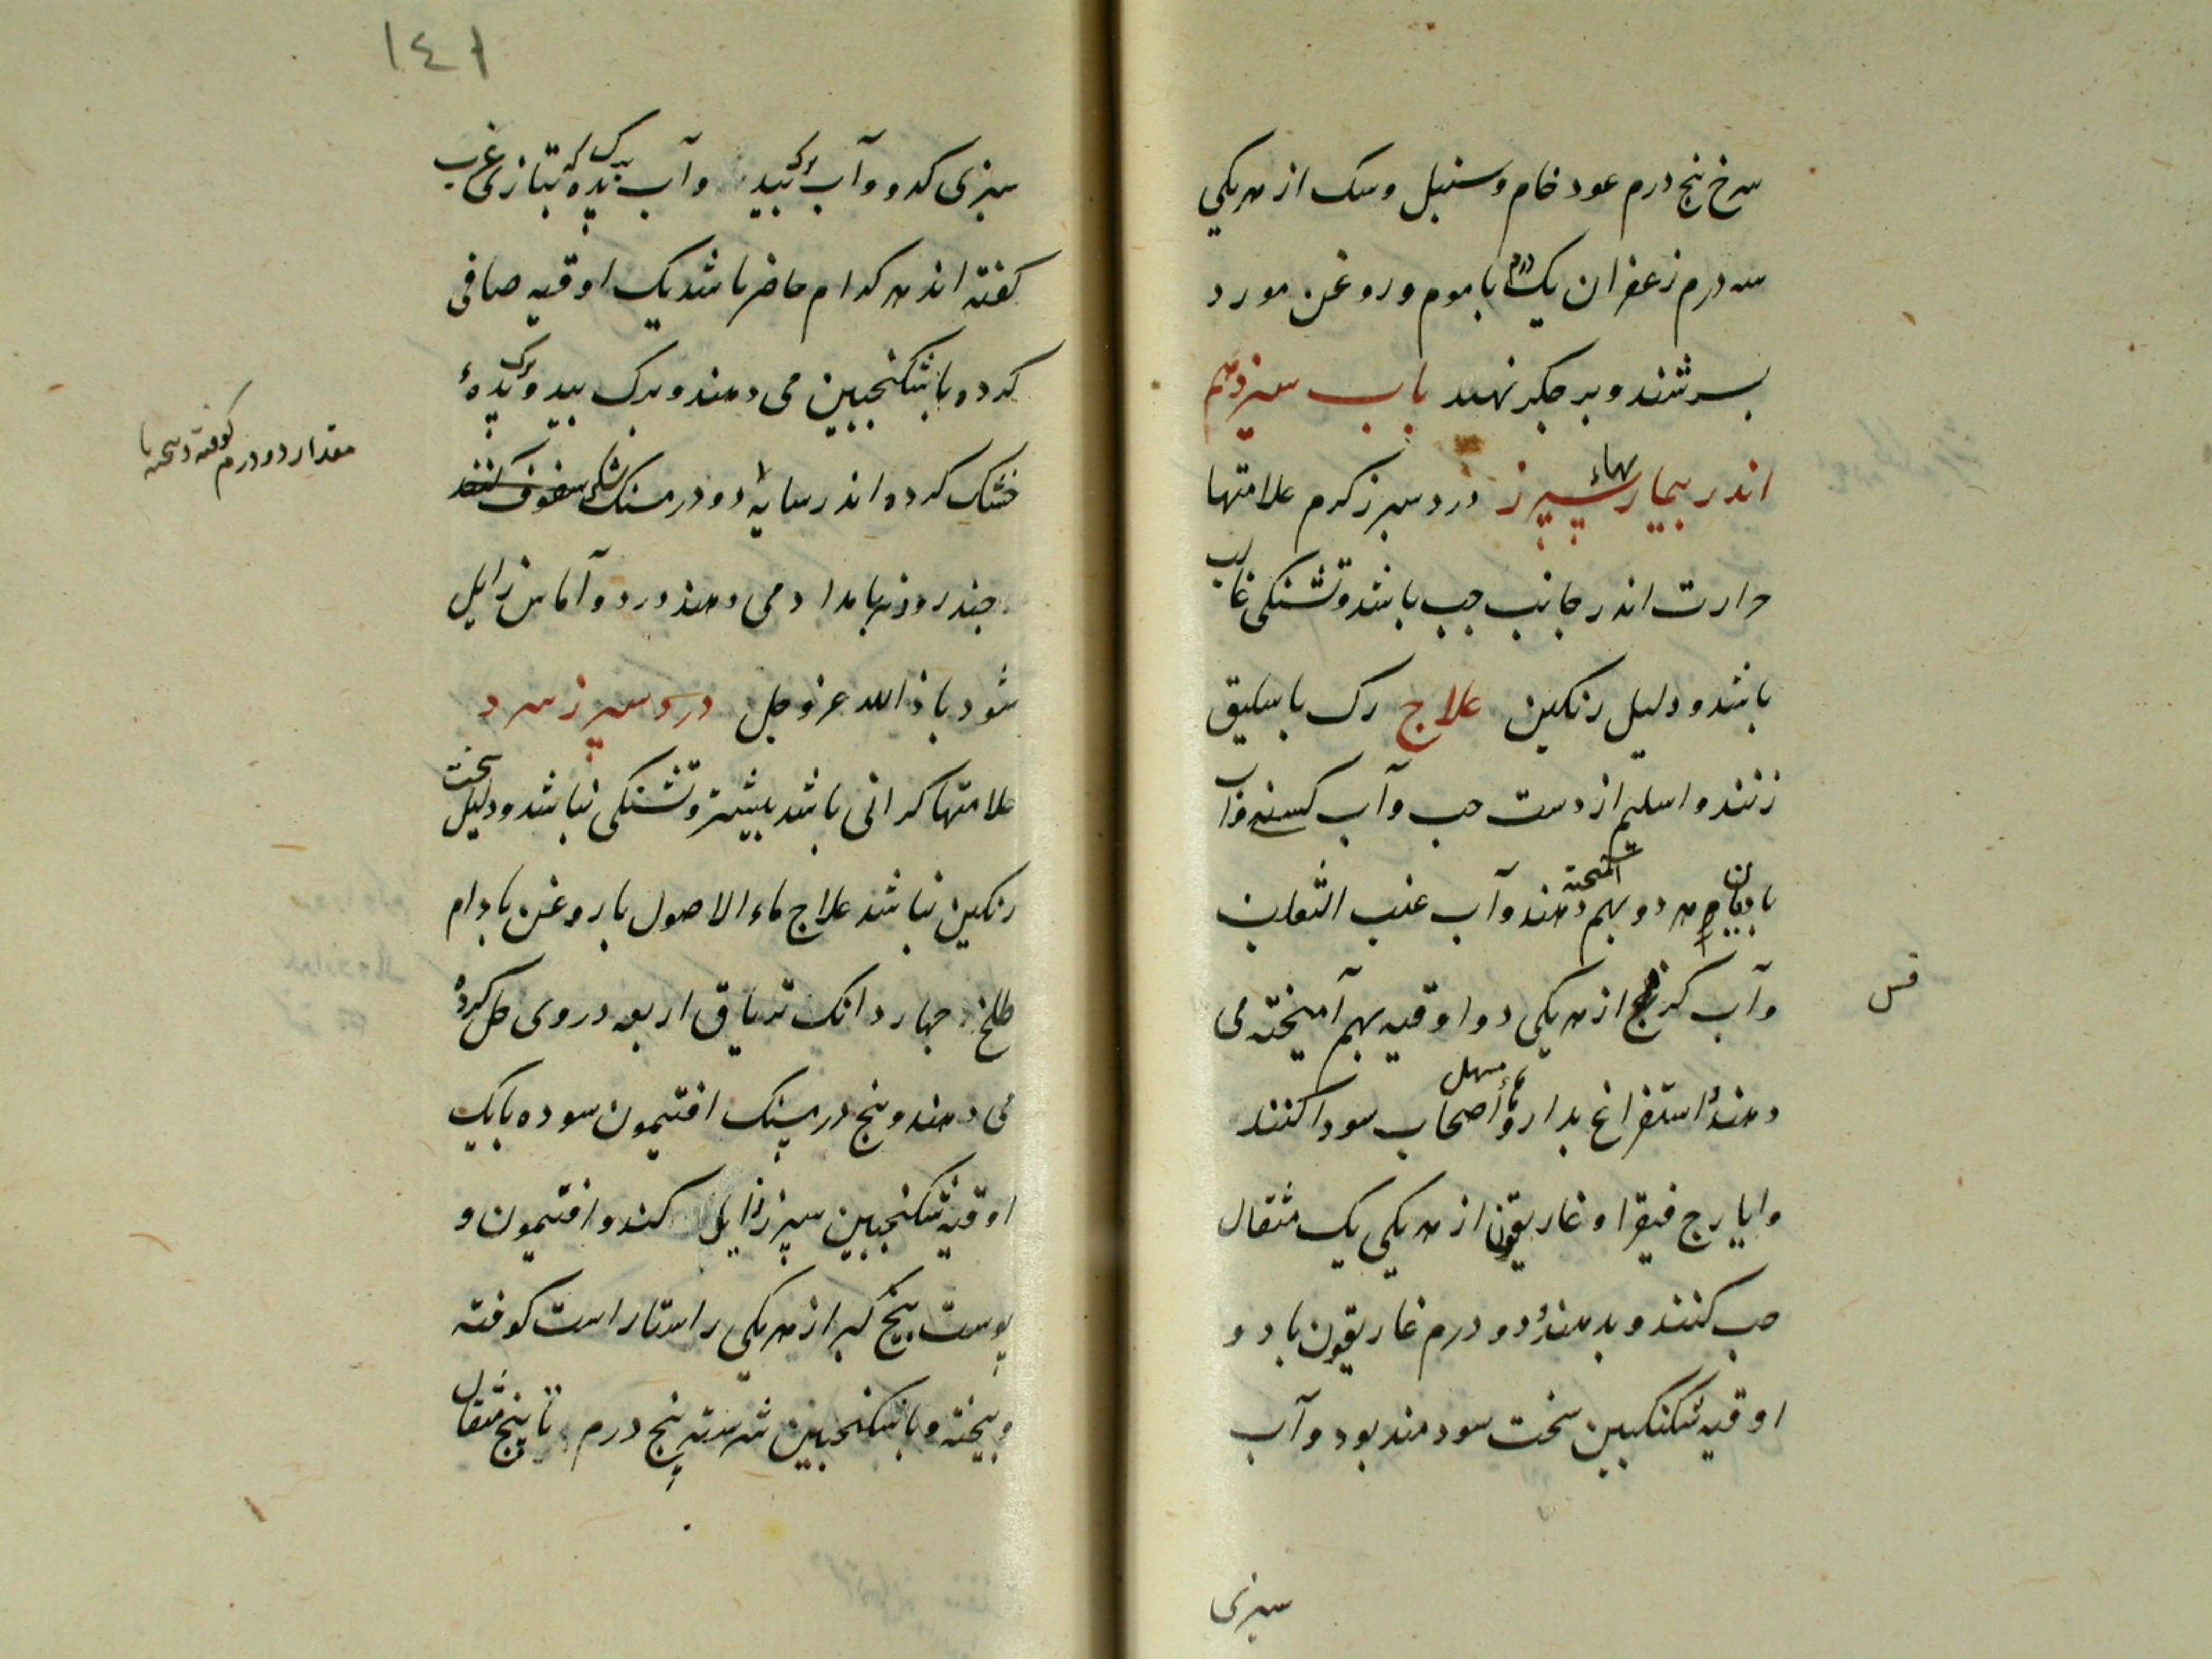 سرخ پنج درم عود خام و سنبل و سک از هریکی
سه درم زعفران یک درم با موم و روغن مورد
بسرشند و بر جکر نهند باب سیزدهم
اندر بیماریهاء سپرز درد سپرز کرم علامتها
حرارت اندر جانب جب باشد و تشنکی غالب
باشد و دلیل رنکین علاج رک باسلیق
زنند و اسلیم از دست جب و آب کسنه و آب
بادیان هر دو بهم آمیخته دهند و آب عنب الثعلب
و آب کرفس از هریکی دو اوقیه بهم آمیخته می
فس
دهند و استفراغ بداروهاء مسهل اصحاب سودا کنند
و ایارج فیقرا و غاریقون از هریکی یک مثقال
حب کنند و بدهند و دو درم غاریقون با دو
اوقیه سکنکبین سخت سودمند بود و آب
سبزی
۱٤۱
سبزی کدو و آب برک بید و آب برک پده که بتازی غرب
کفته اند هر کدام حاضر باشد یک اوقیه صافی
کرده با سکنجبین می دهند و برک بید و برک پدهٔ
خشک کرده اند ر سایه دو درمسنک سفوف کنند
مقدار دو درم کوفته و بیخته با
جند روز بامداد می دهند درد و آماس زایل
شود باذن الله عز و جل درد سپرز سرد
علامتها کرانی باشد بیشتر و تشنکی نباشد و دلیل سخت
رنکین نباشد علاج ماء الاصول با روغن بادام
طلخ جهار دانک تریاق اربعه در وی حل کرده
می دهند و پنج درمسنک افتیمون سوده با یک
اوقیه سکنجبین سپرز زایل کند و افتیمون و
پوست بیخ کبر از هریکی راستاراست کوفته
و بیخته و با سکنجبین سرشته پنج درم تا پنج مثقال